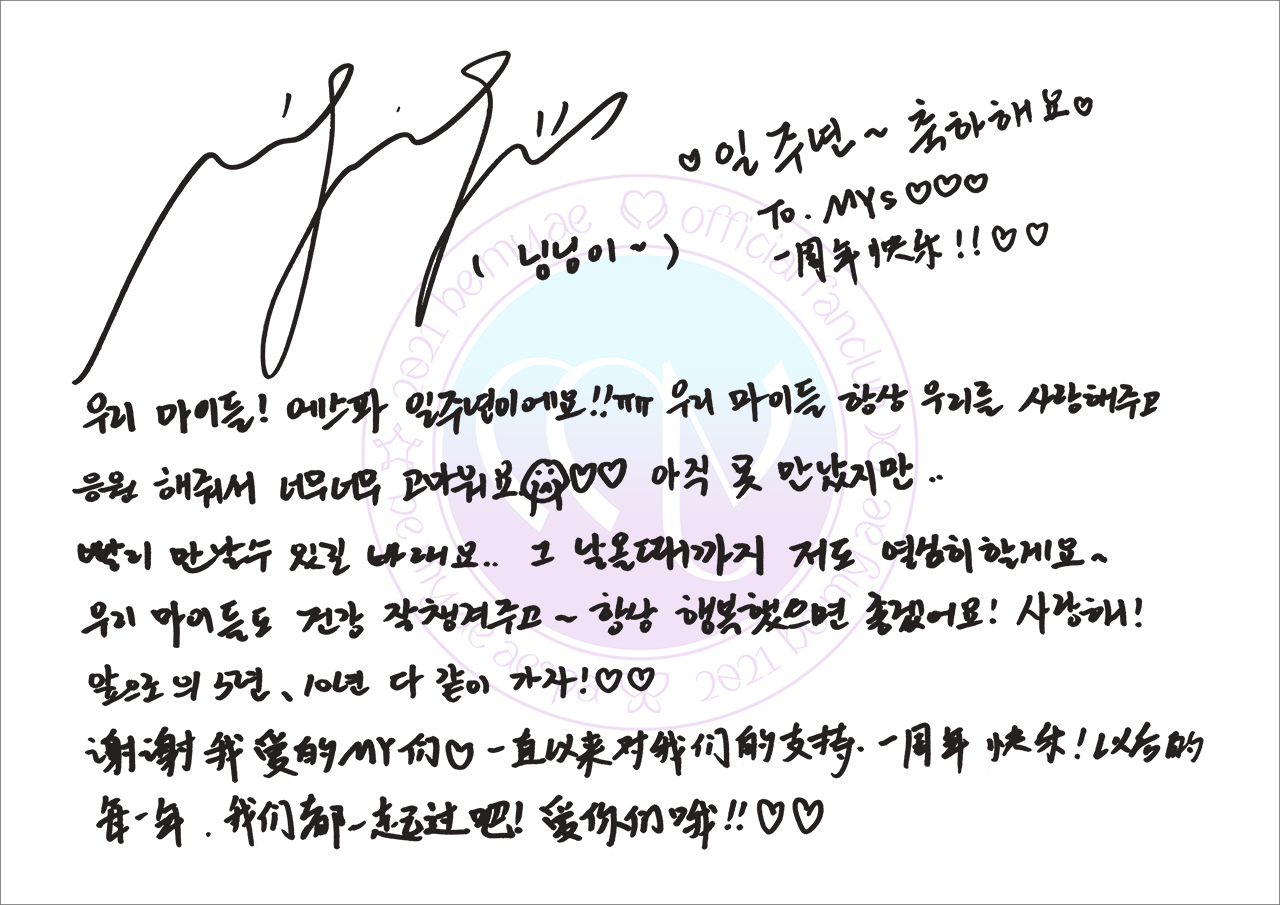 ♡일 주년~ 축하해요♡
To. MYs♡♡♡
一周年快乐!!♡♡
( 닝닝이~ )
우리 마이들! 에스파 일주년이에요!!ㅠㅠ 우리 마이들 항상 우리를 사랑해주고
응원 해줘서 너무너무 고마워요♡♡ 아직 못 만났지만..
빨리 만날수 있길 바래요.. 그 날올때까지 저도 열심히할게요~
우리 마이들도 건강 잘챙겨주고~ 항상 행복했으면 좋겠어요! 사랑해!
앞으로의 5년、10년 다 같이 가자!♡♡
谢谢我爱的MY们♡一直以来对我们的支持. 一周年快乐!以后的
每一年. 我们都一起过吧! 爱你们哦!!♡♡
2021 be my ae official fanclub
2021 be my ae
my ae aespa
MY